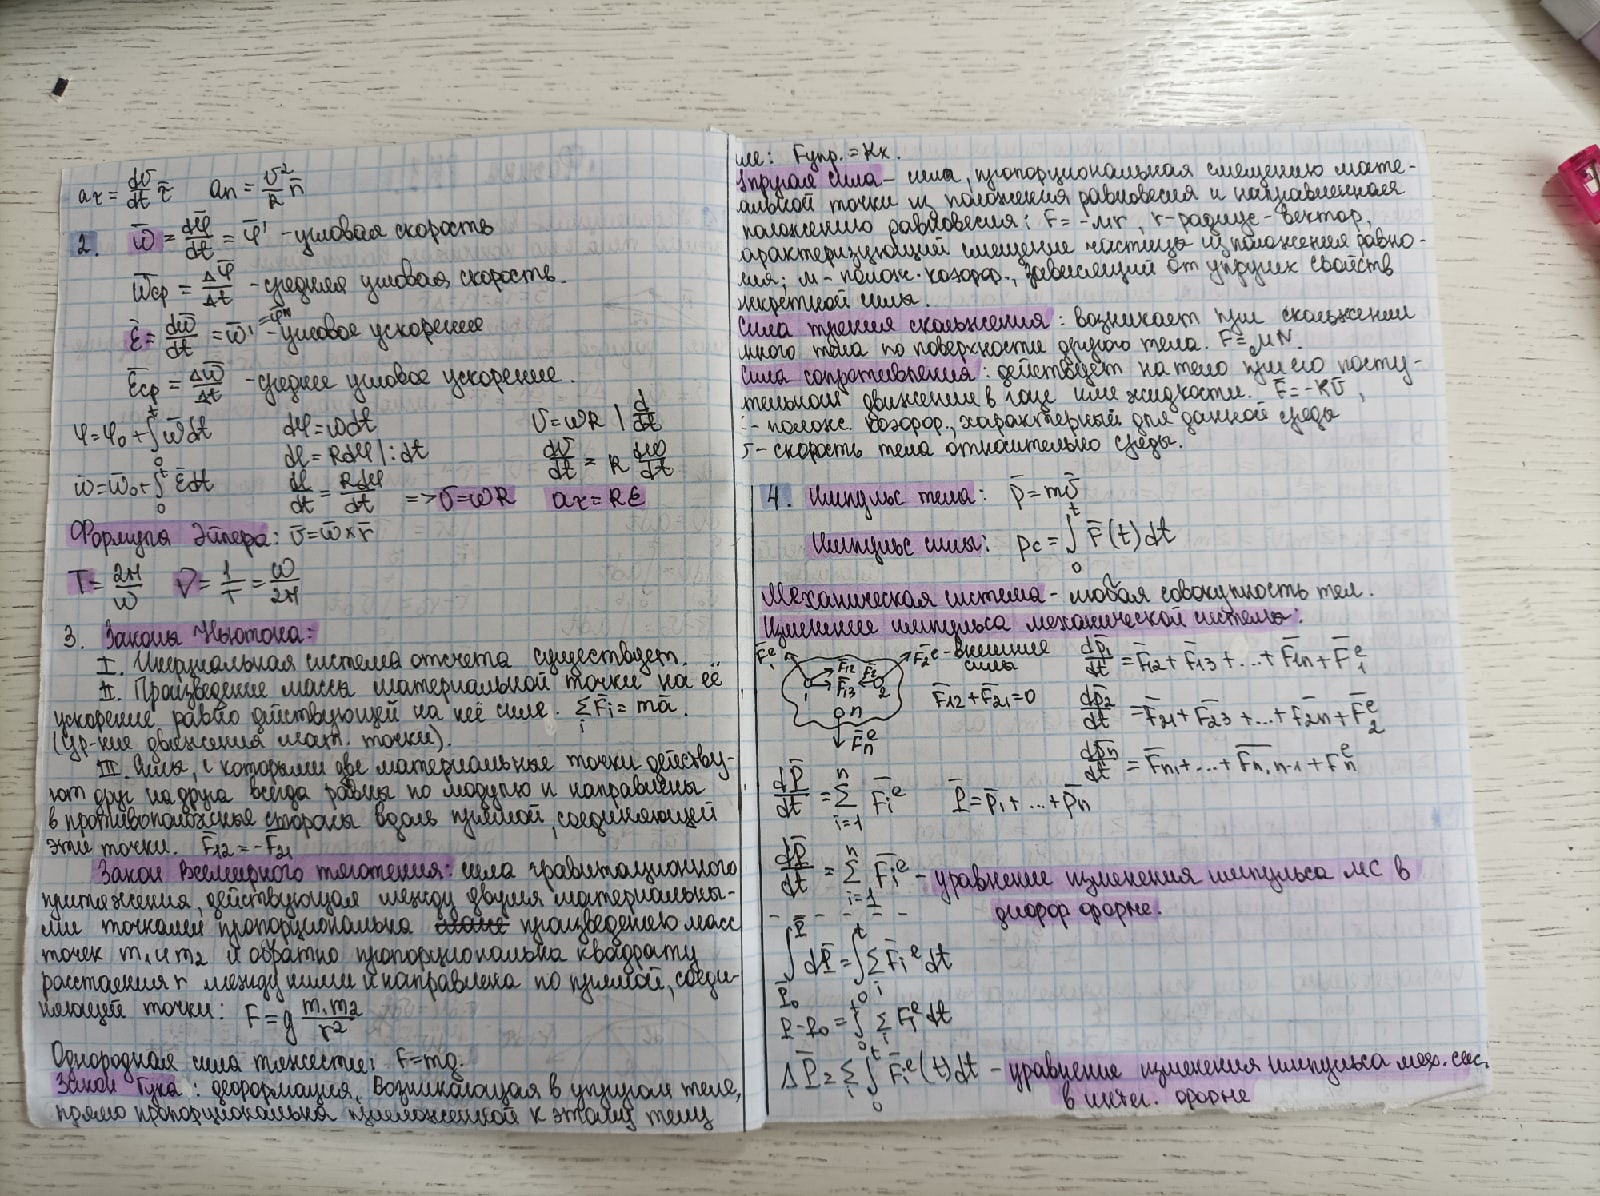 aτ = dv/dt τ̄   an = v²/R n̄
2. ω̄ = dφ̄/dt = φ̄' - угловая скорость
ω̄ср = Δφ̄/Δt - средняя угловая скорость.
ε̄ = dω̄/dt = ω̄' = φ̄'' - угловое ускорение
ε̄ср = Δω̄/Δt - среднее угловое ускорение.
φ = φ₀ + ∫₀ᵗ ω̄dt   dφ = ωdt   v = ωR | d/dt
dl = Rdφ |: dt   dv̄/dt = R dω/dt
ω̄ = ω̄₀ + ∫₀ᵗ ε̄dt   dl/dt = Rdφ/dt => v̄ = ωR   aτ = Rε
Формула Эйлера: v̄ = ω̄ × r̄
T = 2π/ω   ν = 1/T = ω/2π
3. Законы Ньютона:
I. Инерциальная система отсчета существует.
II. Произведение массы материальной точки на её
ускорение равно действующей на неё силе. ∑ᵢ F̄i = mā.
(ур-ние движения мат. точки).
III. Силы, с которыми две материальные точки действу-
ют друг на друга всегда равны по модулю и направлены
в противоположные стороны вдоль прямой, соединяющей
эти точки. F̄₁₂ = -F̄₂₁
Закон Всемирного тяготения: сила гравитационного
притяжения, действующая между двумя материальны-
ми точками пропорциональна произведению масс
точек m₁ и m₂ и обратно пропорциональна квадрату
расстояния r между ними и направлена по прямой, соеди-
няющей точки: F = g m₁m₂/r²
Однородная сила тяжести: F = mg.
Закон Гука: деформация, возникающая в упругом теле,
прямо пропорциональна приложенной к этому телу
ле: Fупр. = kx.
Упругая сила - сила, пропорциональная смещению мате-
альной точки из положения равновесия и направленная
положению равновесия: F̄ = -μr, r - радиус-вектор,
арактеризующий смещение частицы из положения равно-
ия; μ - полож. коэфф., зависящий от упругих свойств
нкретной силы.
Сила трения скольжения: возникает при скольжении
нного тела по поверхности другого тела. F = μN.
Сила сопротивления: действует на тело при его посту-
тельном движении в газе или жидкости. F̄ = -kv̄,
- полож. коэфф., характерный для данной среды
v̄ - скорость тела относительно среды.
4. Импульс тела: p̄ = mv̄
Импульс силы: pc = ∫₀ᵗ F̄(t)dt
Механическая система - любая совокупность тел.
Изменение импульса механической системы:
F̄₁ᵉ   F̄₁₂   F̄₂₁   F̄₂ᵉ - внешние силы   dp̄₁/dt = F̄₁₂ + F̄₁₃ + ... + F̄₁n + F̄₁ᵉ
1   F̄₁₃   2   F̄₁₂ + F̄₂₁ = 0
n   dp̄₂/dt = F̄₂₁ + F̄₂₃ + ... + F̄₂n + F̄₂ᵉ
F̄nᵉ   dp̄n/dt = F̄n₁ + ... + F̄n,n-1 + Fnᵉ
dP̄/dt = ∑ᵢ₌₁ⁿ F̄iᵉ   P̄ = p̄₁ + ... + p̄n
dP̄/dt = ∑ᵢ₌₁ⁿ F̄iᵉ - уравнение изменения импульса МС в
дифф форме.
∫ dP̄ = ∫₀ᵗ ∑ᵢ F̄iᵉ dt
P - P₀ = ∫₀ᵗ ∑ᵢ F̄iᵉ dt
ΔP̄ = ∑ᵢ ∫₀ᵗ F̄iᵉ(t)dt - уравнение изменения импульса мех. сис.
в интег. форме